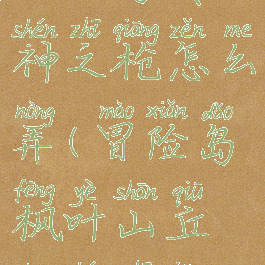 shén zhī qiāng zěn me
神之枪怎么
nòng mào xiǎn dǎo
弄(冒险岛
fēng yè shān qiū
枫叶山丘